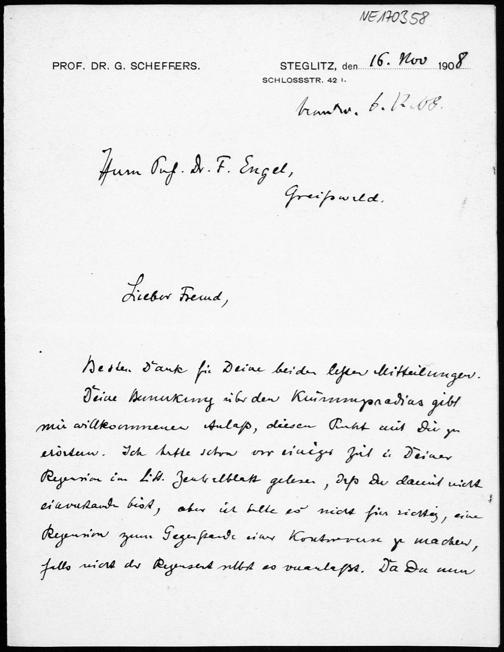 NE170358
PROF. DR. G. SCHEFFERS.
STEGLITZ, den 16. Nov 1908
SCHLOSSSTR. 42 I.
beantw. 6.12.08.
Herrn Prof. Dr. F. Engel,
Greifswald.
Lieber Freund,
Besten Dank für Deine beiden letzten Mitteilungen.
Deine Bemerkung über den Krümmungsradius gibt
mir willkommenen Anlaß, diesen Punkt mit Dir zu
erörtern. Ich hatte schon vor einiger Zeit in Deiner
Rezension im Litt. Zentralblatt gelesen, daß Du damit nicht
einverstanden bist, aber ich halte es nicht für richtig, eine
Rezension zum Gegenstande einer Kontroverse zu machen,
falls nicht der Rezensent selbst es veranlaßt. Da Du nun